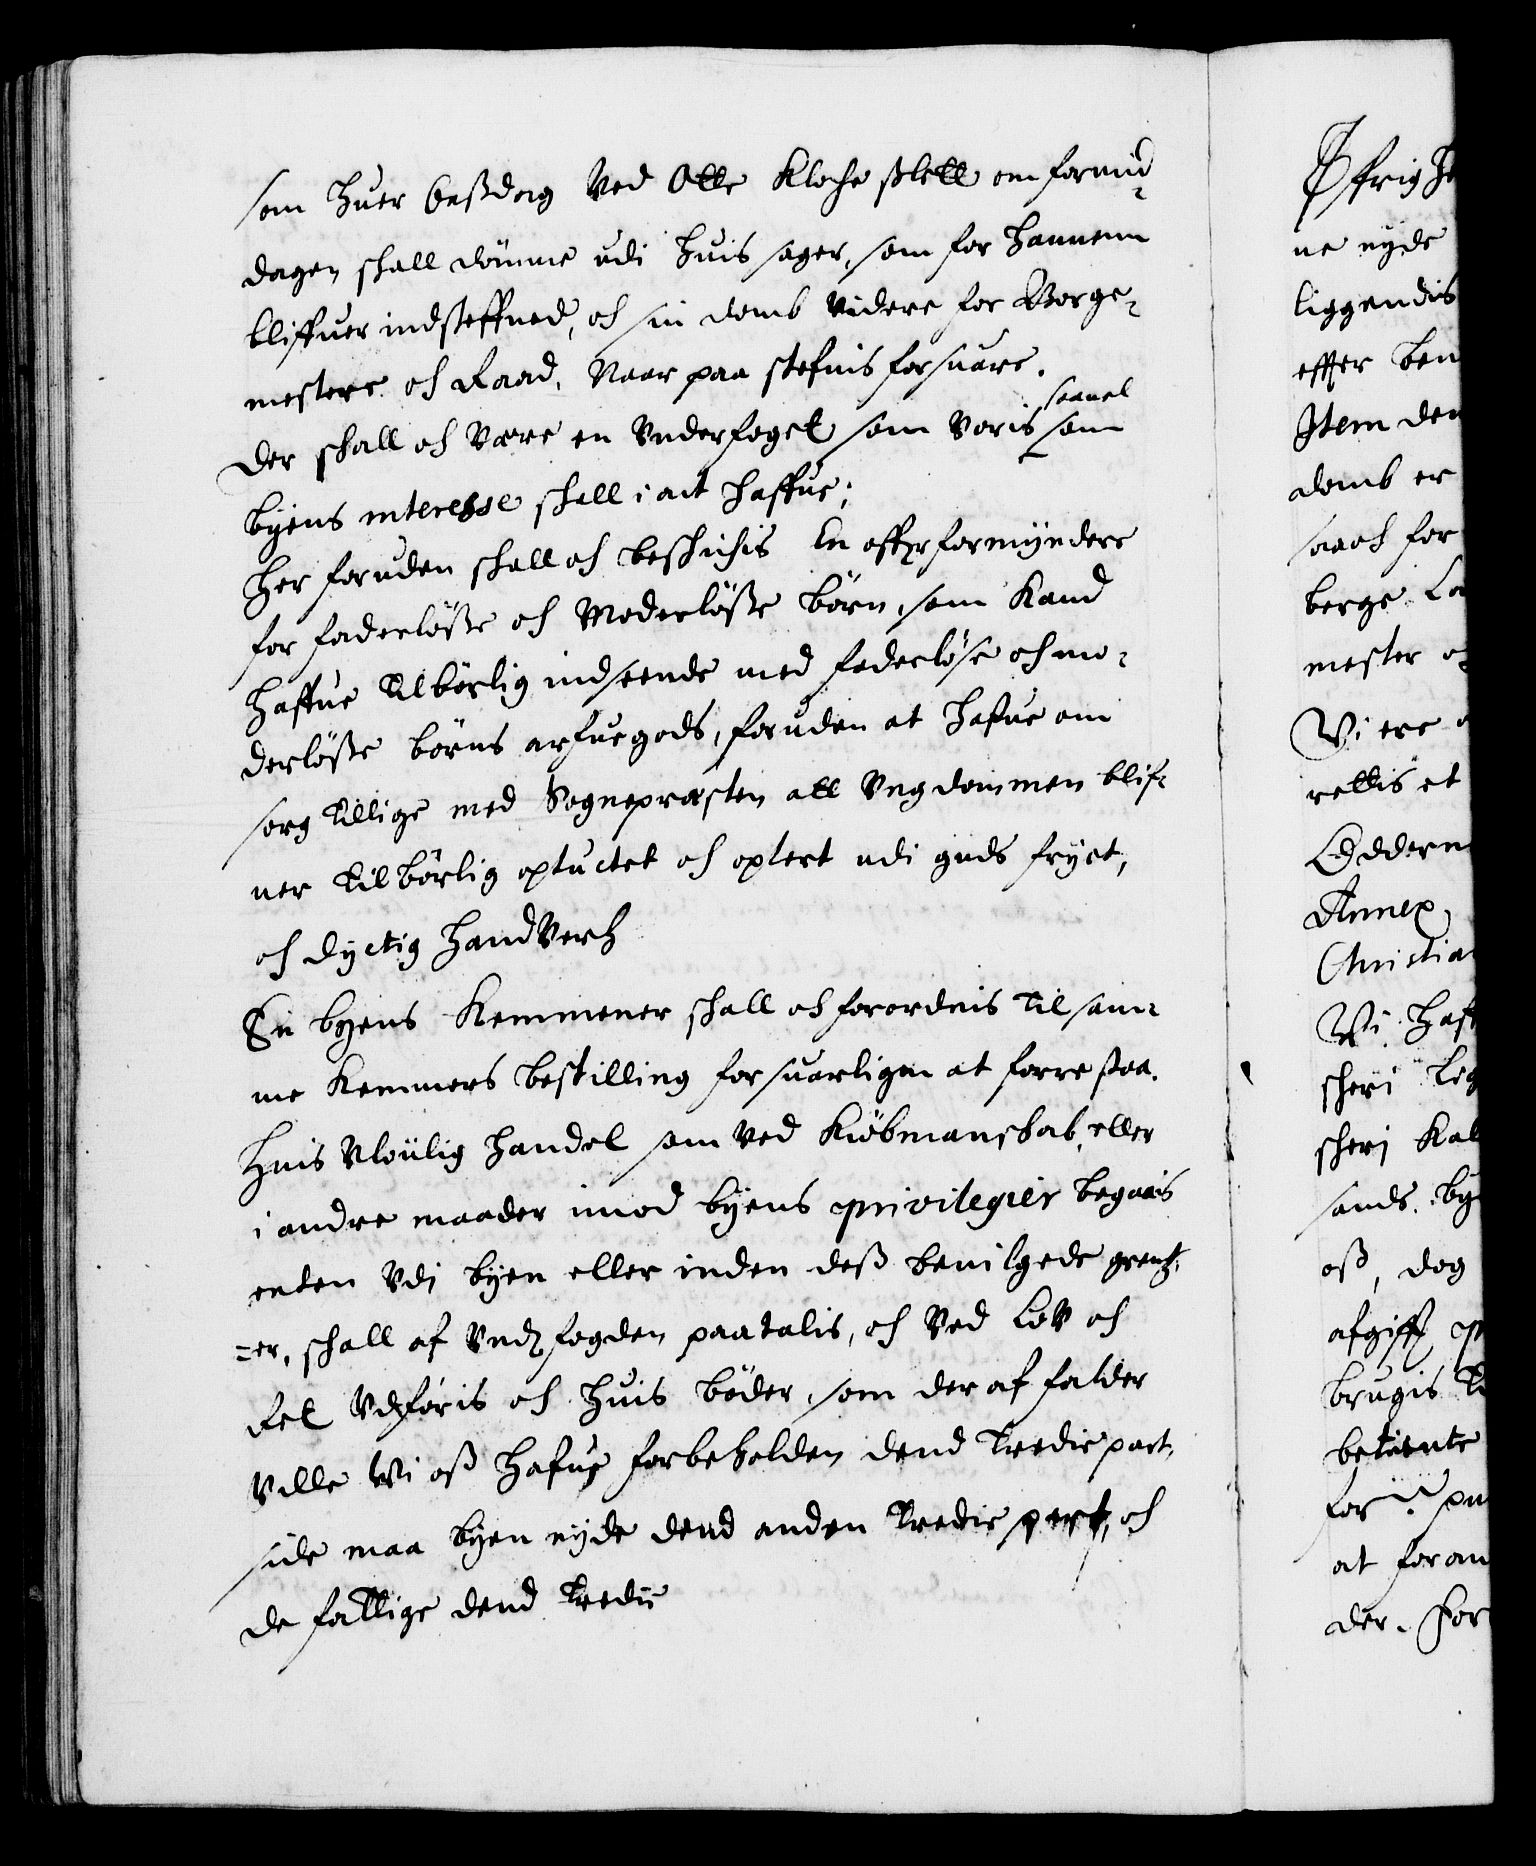 som huer Oßdag ved Otte Klocke slett om formid¬
dagen schall dømme udi huis sager, som for hannem
bliffuer indsteffned, och sin domb videre for Borge¬
mestere och Raad, Naar paa stefnis forsuare.
Der schall och Være en Vnderfoget som Voris saauel som
byens interesse schall i act haffue;
Her foruden schall och beschichis En offuerformyndere
for faderløsse och Moderløsse børn, som Kand
haffue tilbørlig indseende med faderløse och mo¬
derløsse børns arfuegods, foruden at hafue om
sorg tillige med Sognepræsten att Vngdommen blif¬
uer tilbørlig optuctet och oplert udi guds fryct,
och dyctig handverch
En byens Kemmener schall och forordnis til sam¬
me Kemmers bestilling forsuarligen at forrestaa.
Huis Vloulig handel som ved Kiøbmanskab, eller
i andre maader imod byens privilegier begaais
enten Vdi byen eller inden deß beuilgede grentz¬
=er, schall af Vnderfogden paatalis, och ved Lov och
Ret Vdføris och huis bøder, som der af falder
Ville Wi oß hafue forbeholden dend tredie part,
siden maa byen nyde dend anden tredie part, och
de fattige dend tredie
Øfrighe
ne nyde
liggendis
effter ben
Item den
domb er
saa och for
berge La
mester og
Wi ere
rettis et
Oddern
Annex
Christia
Wi haf
scheri lig
scheri Kal
sands by
oß, dog
afgifft
brugis
betiente
for
at foran
der. For